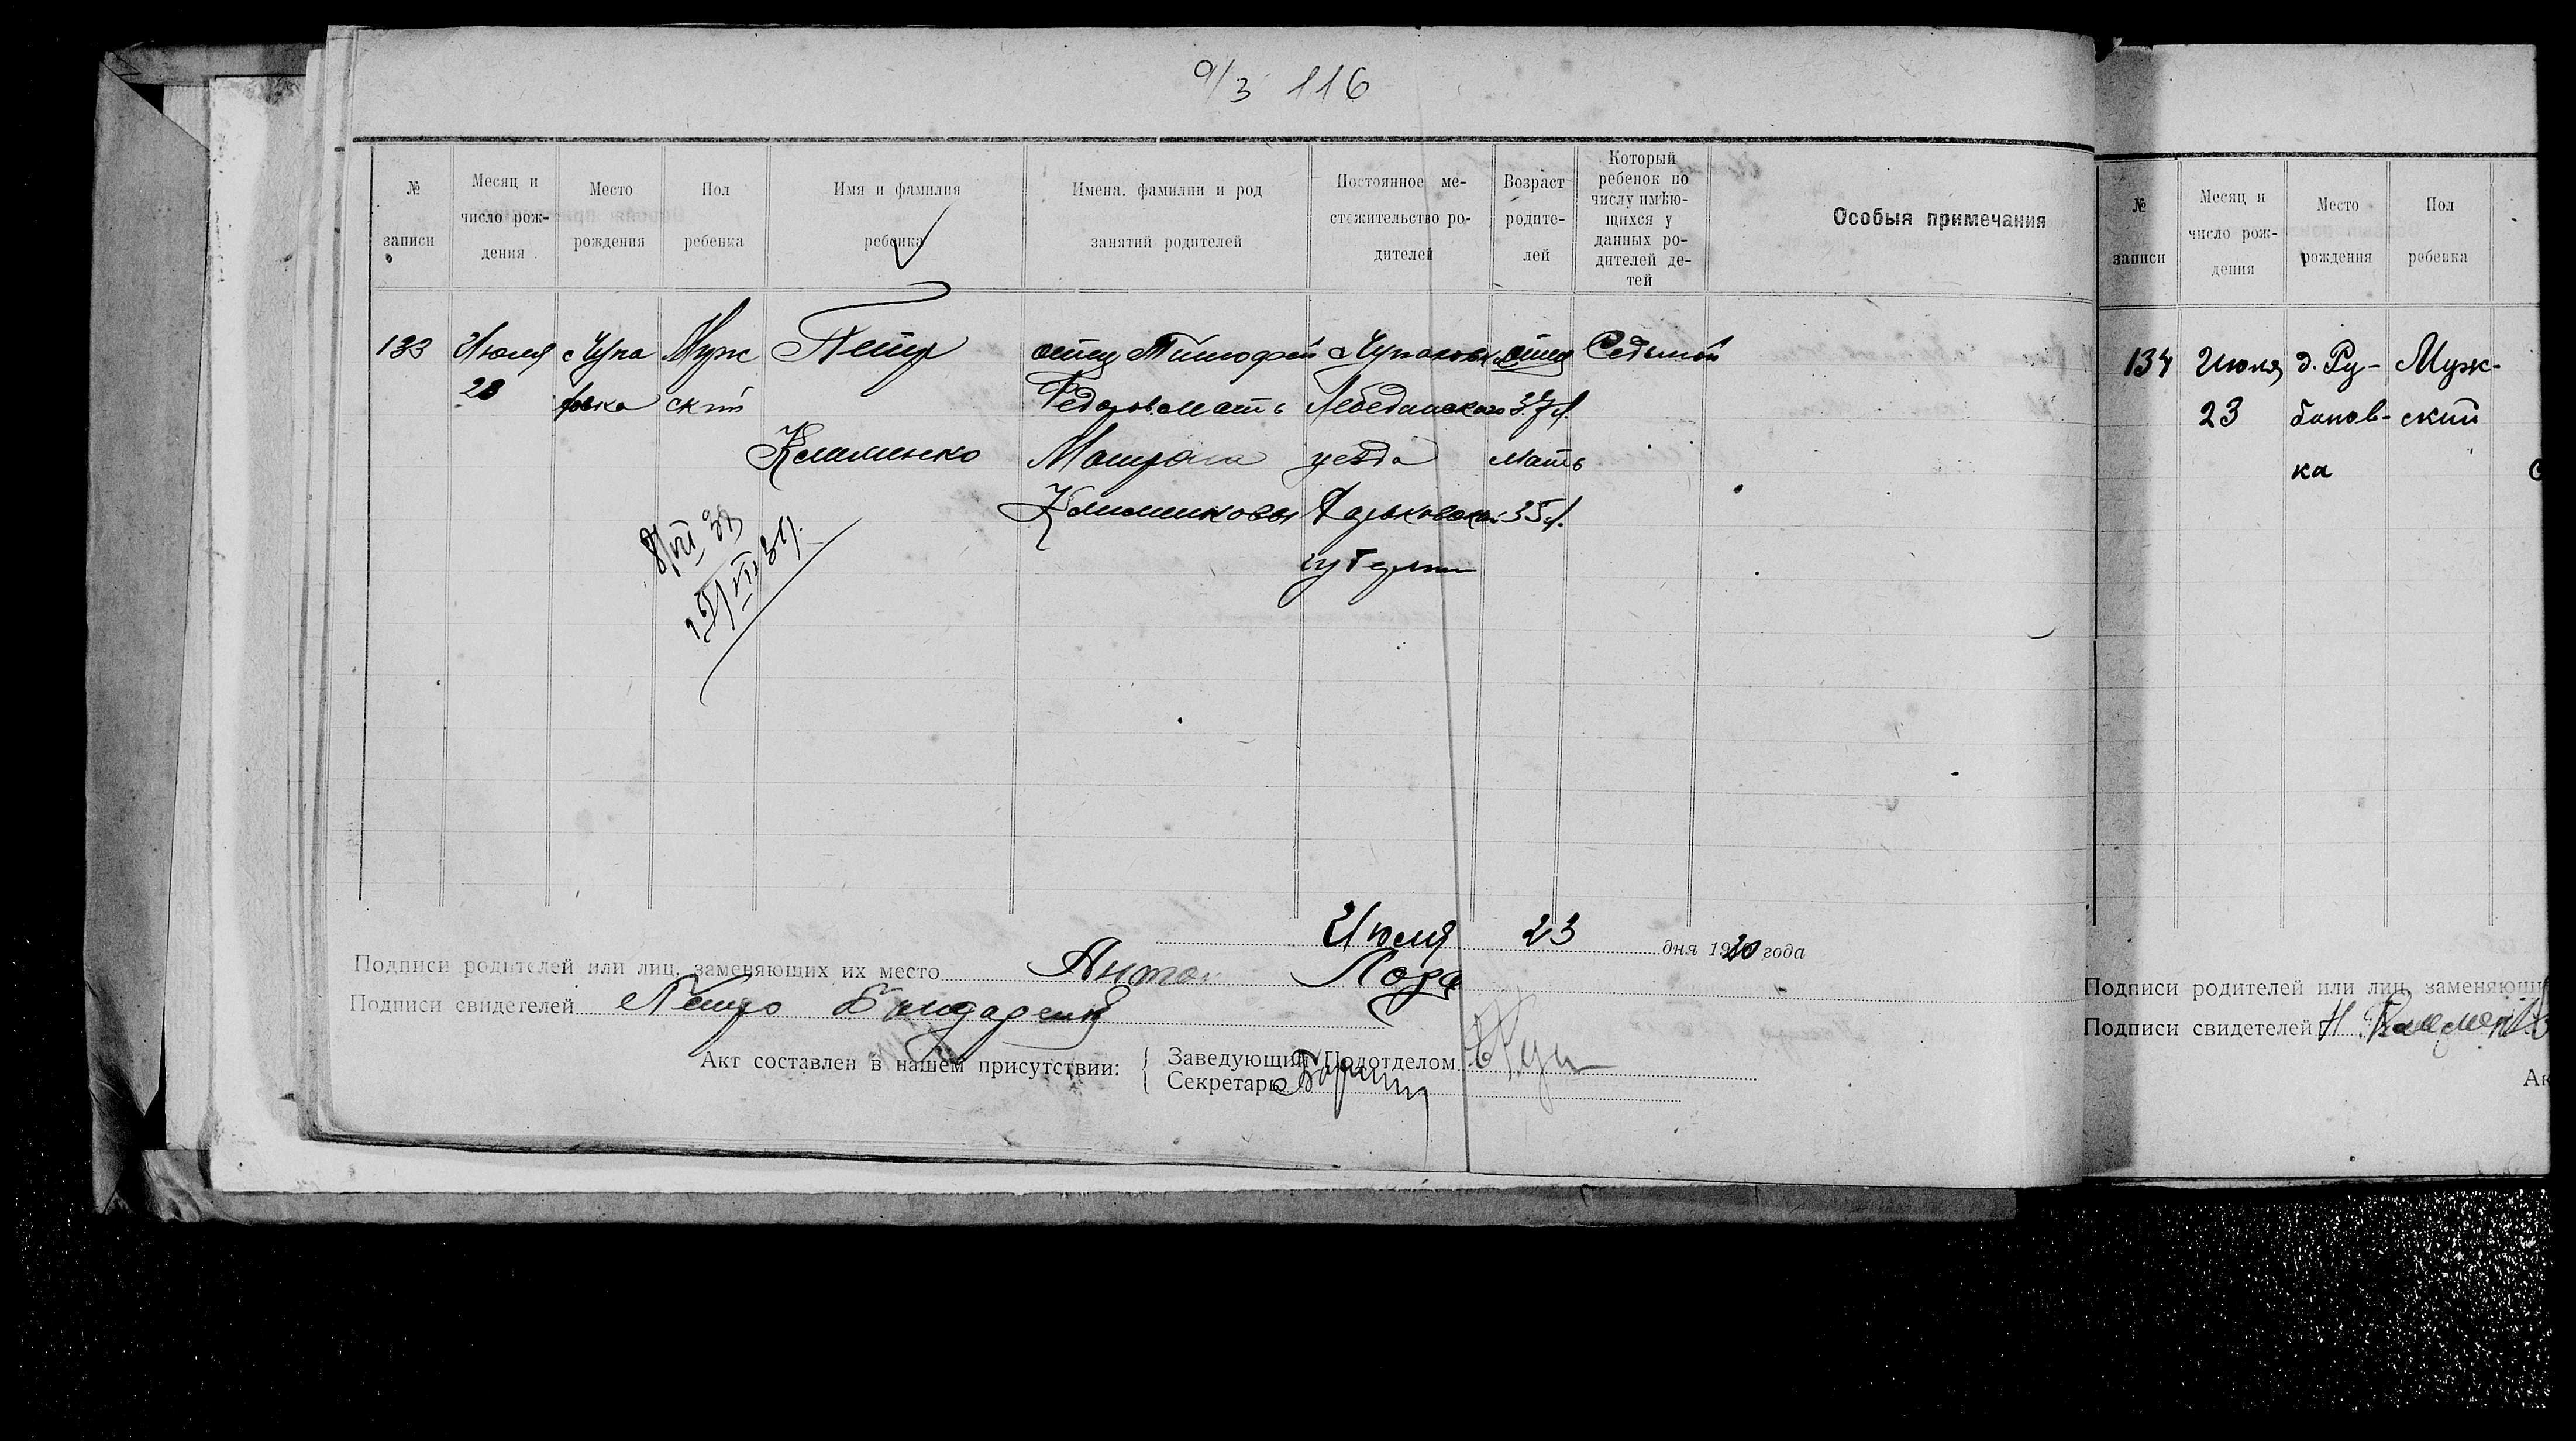 9/3 116
№ записи
Месяц и число рож-дения
Место рождения
Пол ребенка
Имя и фамилия ребенка
Имена. фамилии и род занятий родителей
Постоянное ме-стожительство ро-дителей
Возраст родите-лей
Который ребенок по числу имѣю-щихся у данных ро-дителей де-тей
Особыя примечания
133 Июля Муж Петр отец Тимофей отец Седьмой
23 ски Федоров. мать Лебединского 37 л.
Клименко уезда мать
Клименковы Харьковской 35 л.
губернии
Июля 23 дня 1920 года
Подписи родителей или лиц, заменяющих их место Антон Лоза
Подписи свидетелей Петро Бондаренко
Акт составлен в нашем присутствии: { Заведующий Подотделом
Секретарь
№ записи
Месяц и число рож-дения
Место рождения
Пол ребенка
134 Июля д. Ру- Муж-
23 банов- ский
ка
Подписи родителей или лиц, заменяющи
Подписи свидетелей Н.
Ак